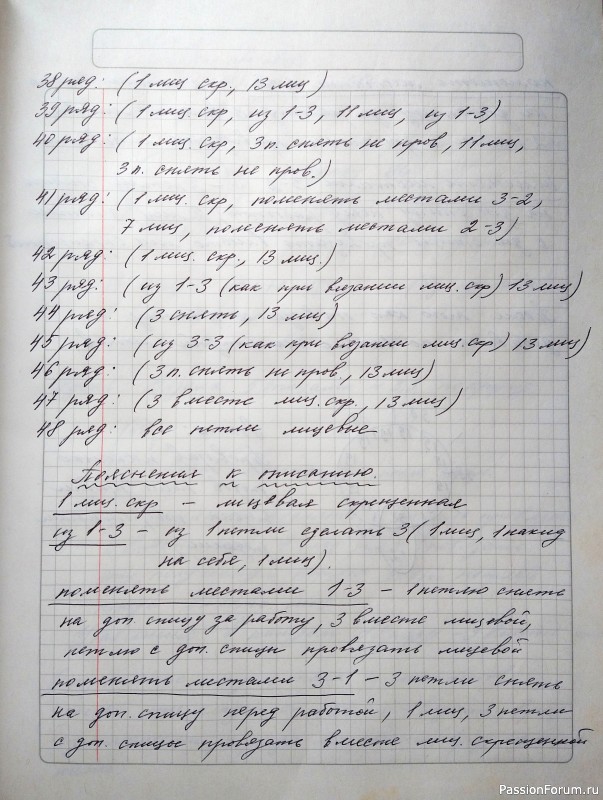 38 ряд: (1 лиц скр, 13 лиц)
39 ряд: (1 лиц. скр, из 1-3, 11 лиц, из 1-3)
40 ряд: (1 лиц. скр, 3 п. снять не пров, 11 лиц,
3 п. снять не пров.)
41 ряд: (1 лиц. скр, поменять местами 3-2,
7 лиц, поменять местами 2-3)
42 ряд: (1 лиц. скр., 13 лиц.)
43 ряд: (из 1-3 (как при вязании лиц. скр) 13 лиц)
44 ряд: (3 снять, 13 лиц)
45 ряд: (из 3-3 (как при вязании лиц. скр) 13 лиц)
46 ряд: (3 п. снять не пров, 13 лиц)
47 ряд: (3 вместе лиц. скр., 13 лиц)
48 ряд: все петли лицевые
Пояснения к описанию.
1 лиц. скр – лицевая скрещенная
из 1-3 – из 1 петли сделать 3 (1 лиц, 1 накид
на себя, 1 лиц).
поменять местами 1-3 – 1 петлю снять
на доп. спицу за работу, 3 вместе лицевой,
петлю с доп. спицы провязать лицевой
поменять местами 3-1 – 3 петли снять
на доп. спицу перед работой, 1 лиц, 3 петли
с доп. спицы провязать вместе лиц. скрещенной
PassionForum.ru